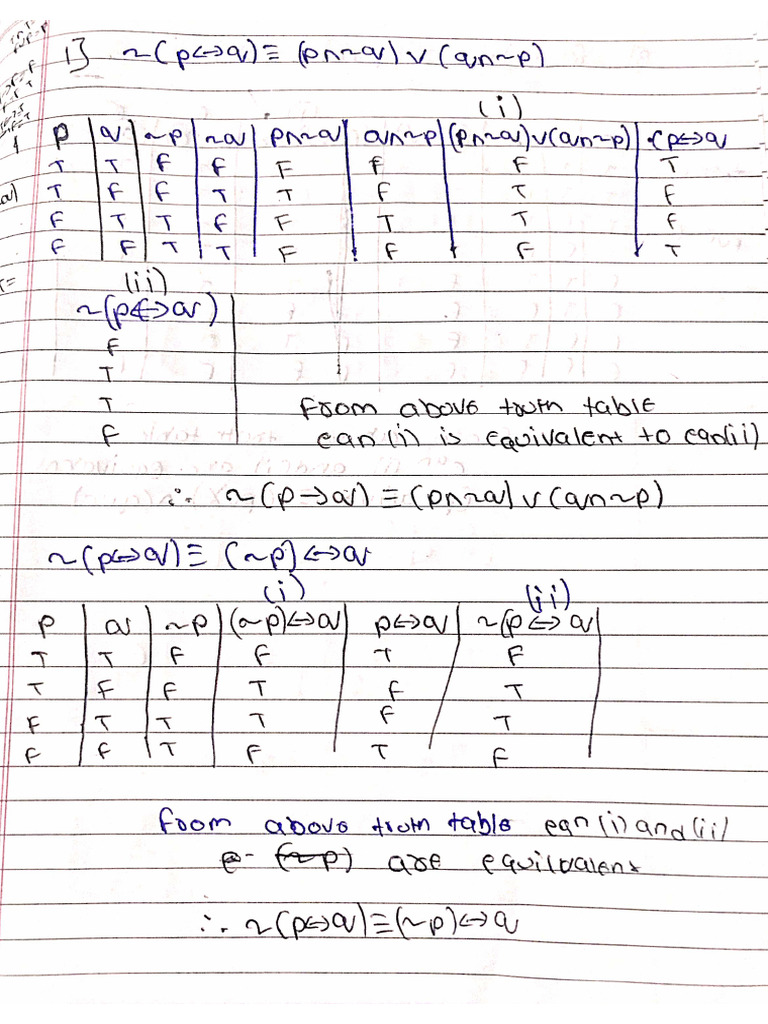 1] ~(p↔q)≡(p∧~q)∨(q∧~p)
(i)
p q ~p ~q p∧~q q∧~p (p∧~q)∨(q∧~p) ~(p↔q
T T F F F F F T
T F F T T F T F
F T T F F T T F
F F T T F F F T
(ii)
~(p↔q)
F
T
T
F
From above truth table
eqn(i) is equivalent to eqn(ii)
∴ ~(p→q)≡(p∧~q)∨(q∧~p)
~(p↔q)≡(~p)↔q
(i) (ii)
p q ~p (~p)↔q p↔q ~(p↔q
T T F F T F
T F F T F T
F T T T F T
F F T F T F
From above truth table eqn(i) and (ii)
are equilvalent
∴ ~(p↔q)≡(~p)↔q